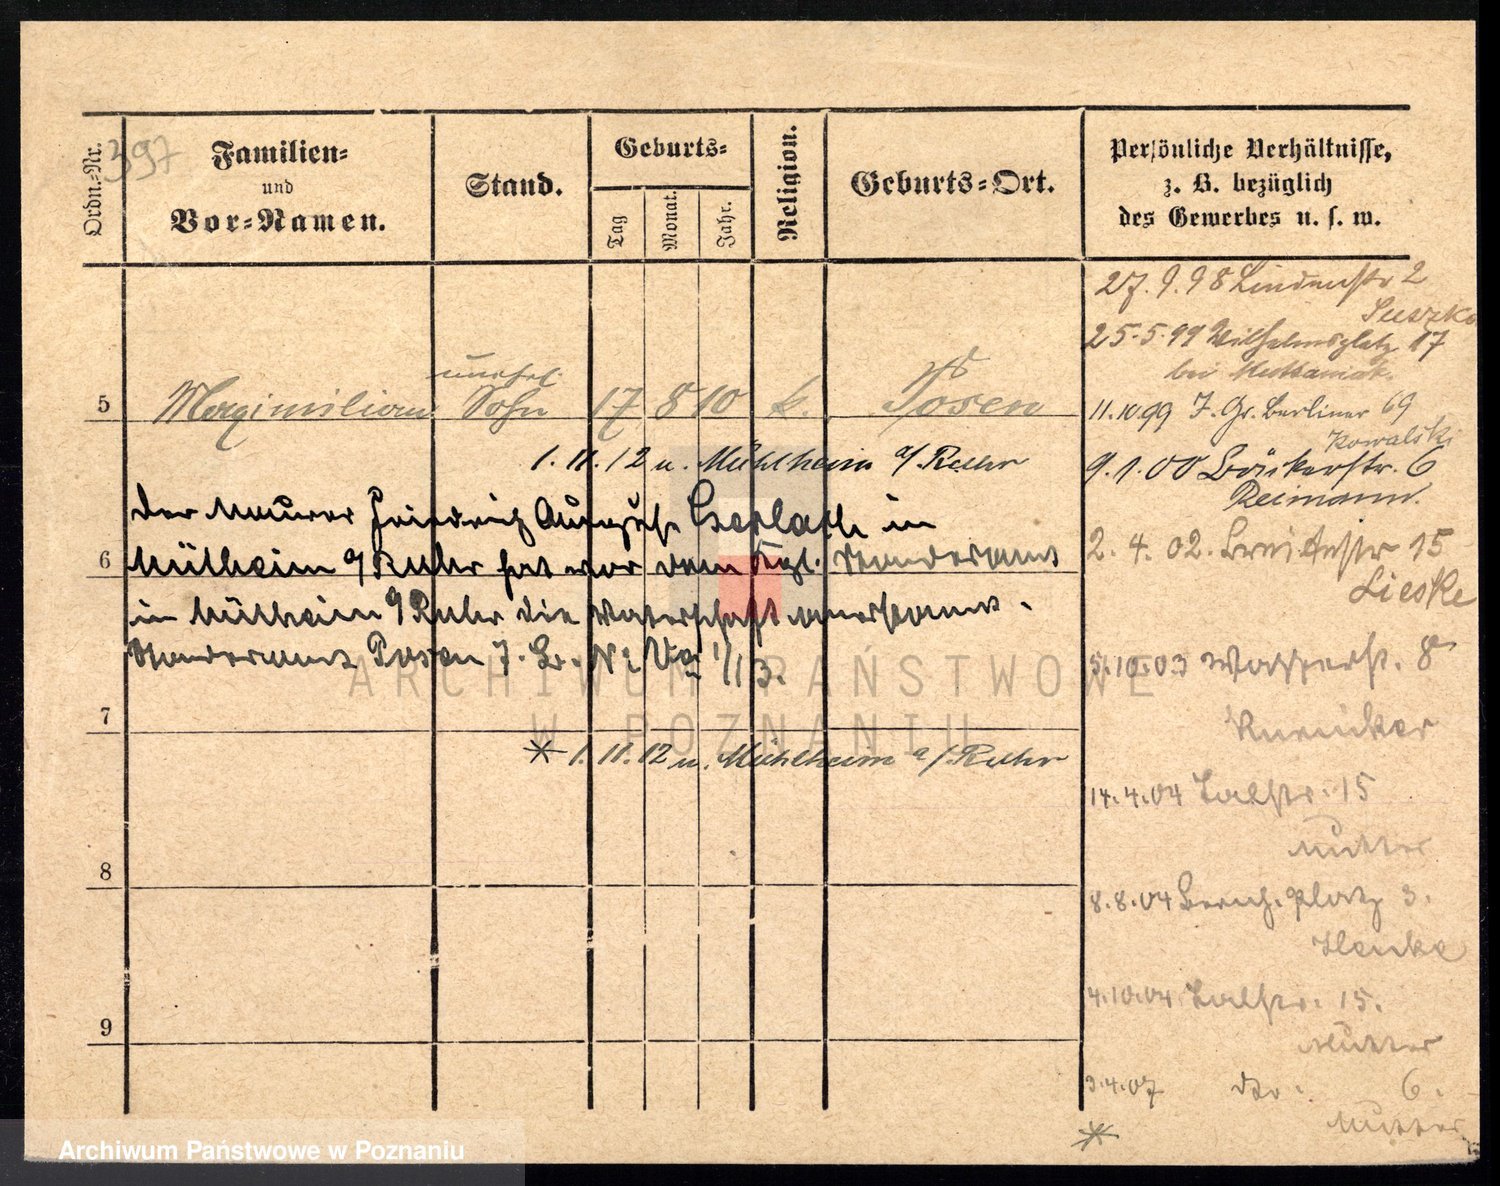 Ordn.-Nr.
397
Familien-
und
Vor-Namen.
Stand.
Geburts-
Tag
Monat.
Jahr.
Religion.
Geburts-Ort.
Persönliche Verhältnisse,
z. B. bezüglich
des Gewerbes u. s. w.
27.9.98 Lindenstr 2
Suszka
25.5.99 Wilhelmsplatz 17
bei
unehel.
5 Maximilian Sohn 17 8 10 k. Posen
11.10.99 Gr. Berliner 69
Kowalski
1.11.12 n. Mühlheim a/Ruhr
9.1.00 Bäckerstr. 6
Reimann.
Der Maurer Friedrich August Gerlach in
6 Mülheim a/Ruhr hat vor dem Kgl. Standesamt
2.4.02. 15
Lieske
in Mülheim a/Ruhr die Vaterschaft anerkannt.
Standesamt Posen J. Nr. 1/13.
5.10.03 Wasserst. 8
7
* 1.11.12 n. Mühlheim a/. Ruhr
14.4.04 Talstr. 15
Mutter
8
8.8.04 Bernh. platz 3.
Henke
4.10.04 Talstr. 15.
Mutter
9
3.4.07 do. 6.
Mutter
*
ARCHIWUM PAŃSTWOWE
W POZNANIU
Archiwum Państwowe w Poznaniu